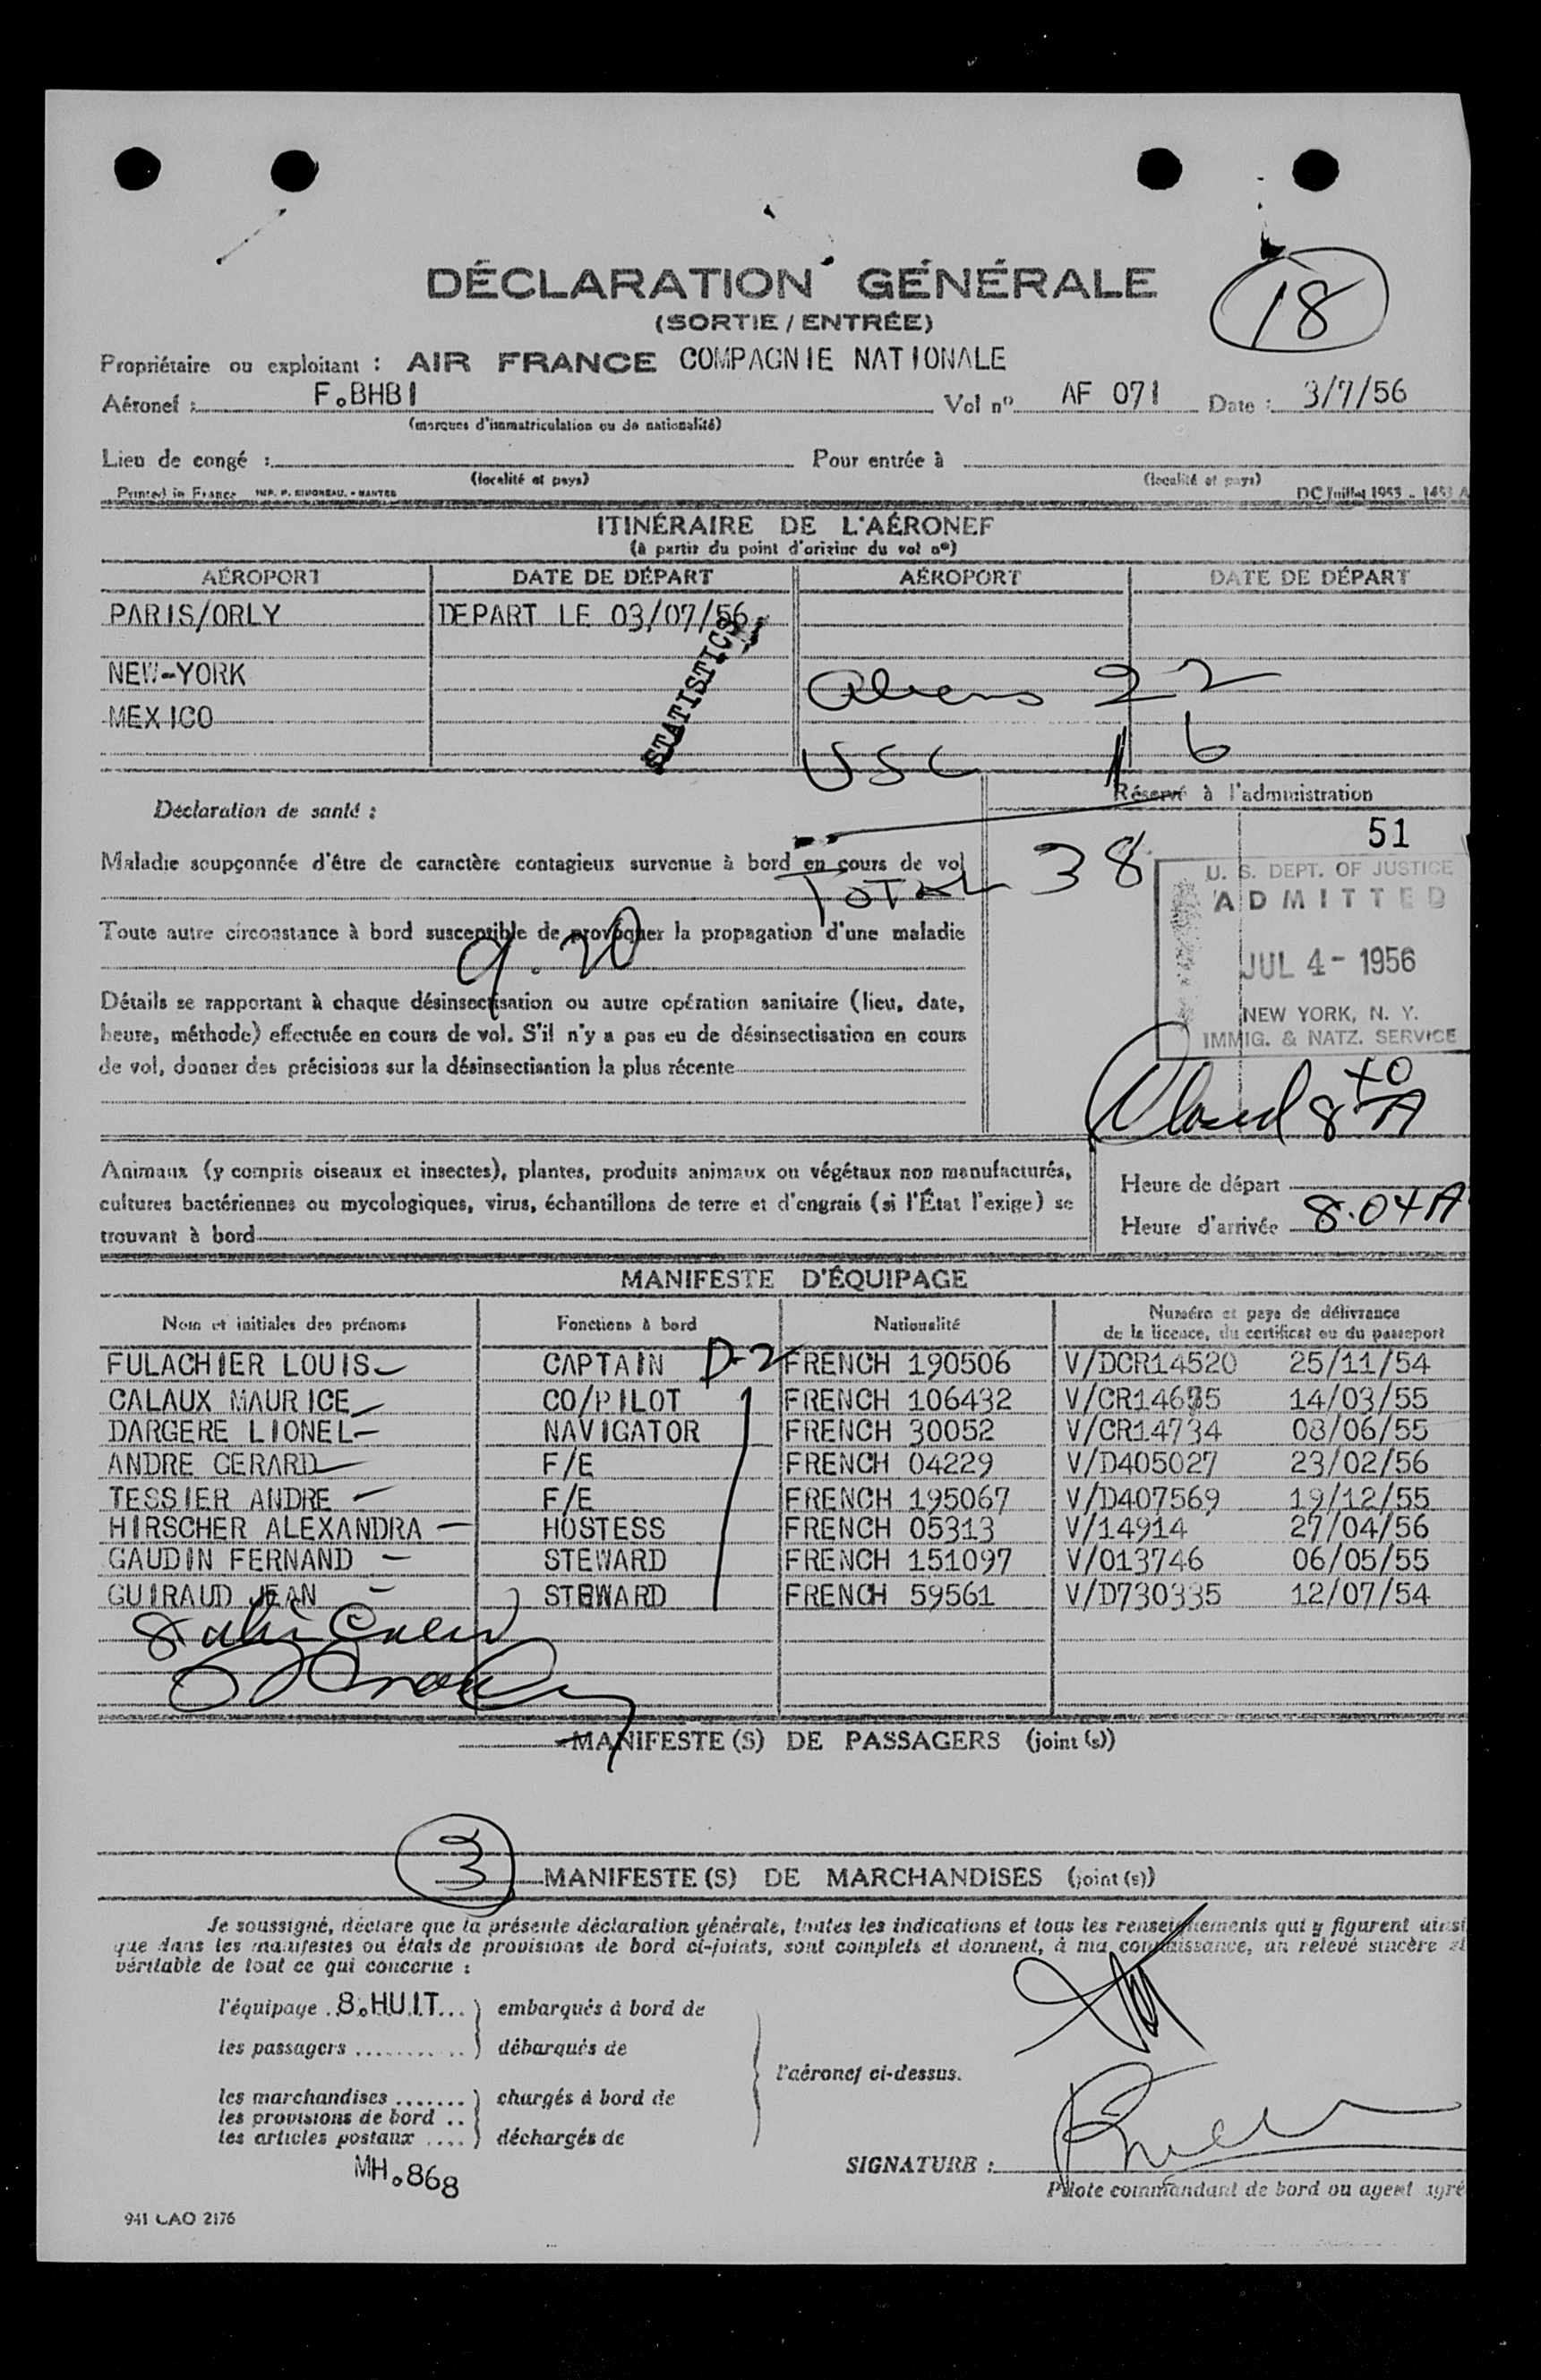 DÉCLARATION GÉNÉRALE
18
(SORTIE / ENTRÉE)
Propriétaire ou exploitant : AIR FRANCE COMPAGNIE NATIONALE
Aéronef : F.BHBI Vol nº AF 071 Date : 3/7/56
(marques d'immatriculation ou de nationalité)
Lieu de congé : Pour entrée à
(localité et pays) (localité et pays)
Printed in France IMP. P. SIMONEAU. - NANTES DC Juillet 1953 - 1453 A
ITINÉRAIRE DE L'AÉRONEF
(à partir du point d'origine du vol nº)
AÉROPORT DATE DE DÉPART AÉROPORT DATE DE DÉPART
PARIS/ORLY DEPART LE 03/07/56
STATISTICS
NEW-YORK
Aliens 22
MEXICO
USC 16
Déclaration de santé :
Réservé à l'administration
51
Maladie soupçonnée d'être de caractère contagieux survenue à bord en cours de vol
TOTAL 38
U. S. DEPT. OF JUSTICE
ADMITTED
JUL 4 - 1956
NEW YORK, N. Y.
IMMIG. & NATZ. SERVICE
Toute autre circonstance à bord susceptible de provoquer la propagation d'une maladie
9.20
Détails se rapportant à chaque désinsectisation ou autre opération sanitaire (lieu, date,
heure, méthode) effectuée en cours de vol. S'il n'y a pas eu de désinsectisation en cours
de vol, donner des précisions sur la désinsectisation la plus récente
Closed 8 40 A
Animaux (y compris oiseaux et insectes), plantes, produits animaux ou végétaux non manufacturés,
cultures bactériennes ou mycologiques, virus, échantillons de terre et d'engrais (si l'État l'exige) se
trouvant à bord
Heure de départ
Heure d'arrivée 8.04A
MANIFESTE D'ÉQUIPAGE
Nom et initiales des prénoms Fonctions à bord Nationalité Numéro et pays de délivrance
de la licence, du certificat ou du passeport
FULACHIER LOUIS CAPTAIN D-2 FRENCH 190506 V/DCR14520 25/11/54
CALAUX MAURICE CO/PILOT FRENCH 106432 V/CR14685 14/03/55
DARGERE LIONEL NAVIGATOR FRENCH 30052 V/CR14734 08/06/55
ANDRE GERARD F/E FRENCH 04229 V/D405027 23/02/56
TESSIER ANDRE F/E FRENCH 195067 V/D407569 19/12/55
HIRSCHER ALEXANDRA HOSTESS FRENCH 05313 V/14914 27/04/56
GAUDIN FERNAND STEWARD FRENCH 151097 V/013746 06/05/55
GUIRAUD JEAN STEWARD FRENCH 59561 V/D730335 12/07/54
8
MANIFESTE(S) DE PASSAGERS (joint(s))
3 MANIFESTE(S) DE MARCHANDISES (joint(s))
Je soussigné, déclare que la présente déclaration générale, toutes les indications et tous les renseignements qui y figurent ainsi
que dans les manifestes ou états de provisions de bord ci-joints, sont complets et donnent, à ma connaissance, un relevé sincère et
véritable de tout ce qui concerne :
l'équipage .8.HUIT... ) embarqués à bord de
les passagers .......... ) débarqués de
l'aéronef ci-dessus.
les marchandises ....... ) chargés à bord de
les provisions de bord ..
les articles postaux .... ) déchargés de
MH.868
SIGNATURE :
Pilote commandant de bord ou agent agré
941 CAO 2176